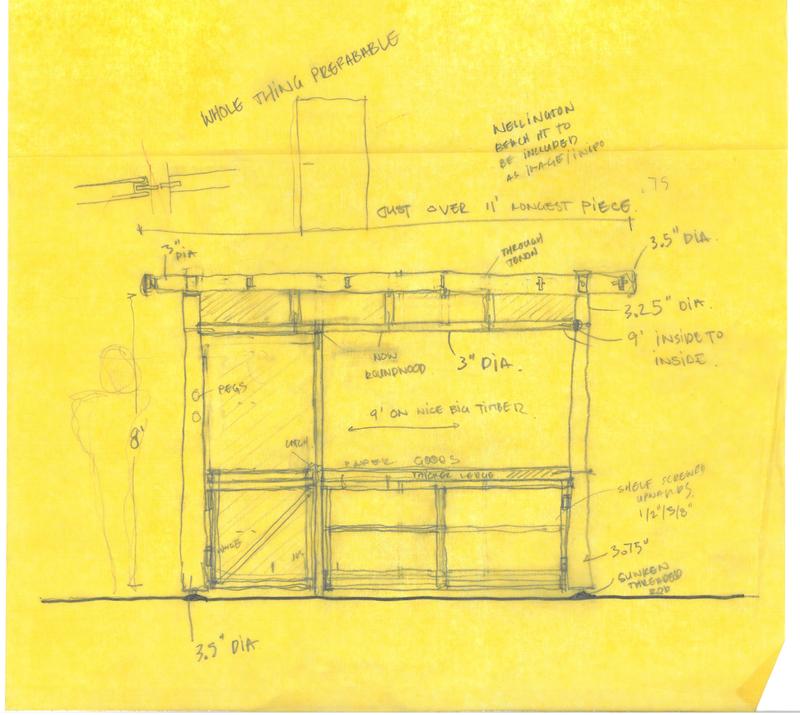 WHOLE THING PREFABABLE
WELLINGTON
BEACH HT TO
BE INCLUDED
AS IMAGE/INSPO
.75
JUST OVER 11' LONGEST PIECE.
3" DIA
THROUGH
TENON
3.5" DIA.
3.25" DIA.
9' INSIDE TO
INSIDE.
NON
ROUNDWOOD
3" DIA.
PEGS
9' ON NICE BIG TIMBER.
8'
LATCH
PAPER GOODS
THICKER LEDGE
SHELF SCREWED
UPWARDS.
1/2"/5/8"
HINGE
3.75"
SUNKEN
THREADED
ROD
3.5" DIA